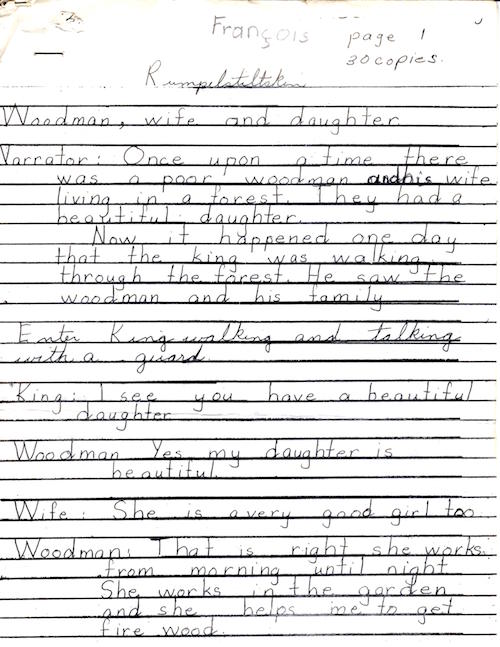 François page 1
30 copies.
Rumpelstiltskin
Woodman, wife and daughter
Narrator: Once upon a time there
was a poor woodman and his wife
living in a forest. They had a
beautiful daughter.
Now it happened one day
that the king was walking
through the forest. He saw the
woodman and his family
Enter King walking and talking
with a guard
King: I see you have a beautiful
daughter
Woodman Yes, my daughter is
beautiful.
Wife: She is a very good girl too
Woodman: That is right she works
from morning until night
She works in the garden
and she helps me to get
fire wood.